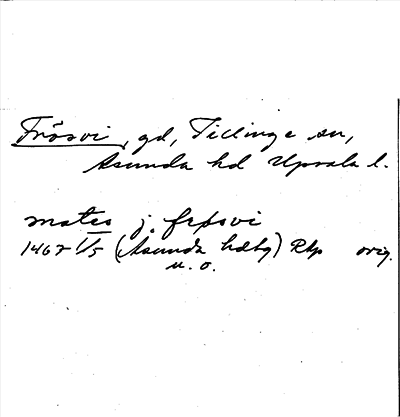 Frösvi, gd, Tillinge sn,
Åsunda hd Upsala l.
mates j. frøsvi
1467 1/5 (Åsunda hdtg) Rkp orig.
u. o.